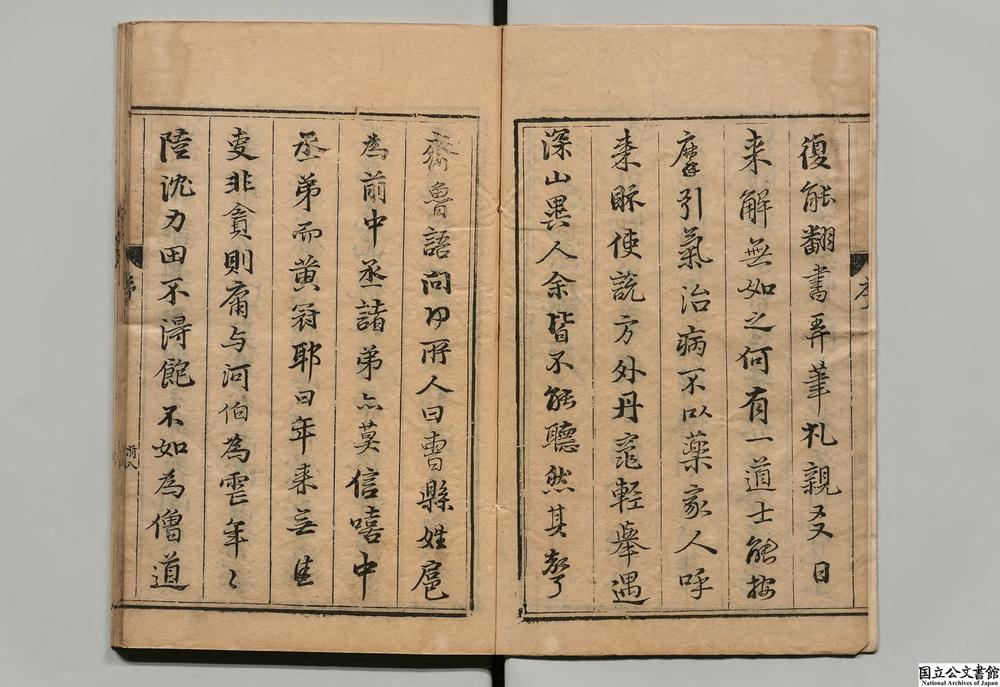 復能翻書弄筆札親友日
来解無如之何有一道士能按
摩引氣治病不以藥家人呼
来眎使説方外丹竈輕舉遇
深山異人余皆不能聽然其聲
齊魯語問何所人曰曹縣姓扈
為前中丞諸弟亦莫信嘻中
丞弟而黄冠耶曰年来無佳
吏非貪則庸与河伯為虐年〻
陸沈力田不得飽不如為僧道
序
前八
国立公文書館
National Archives of Japan